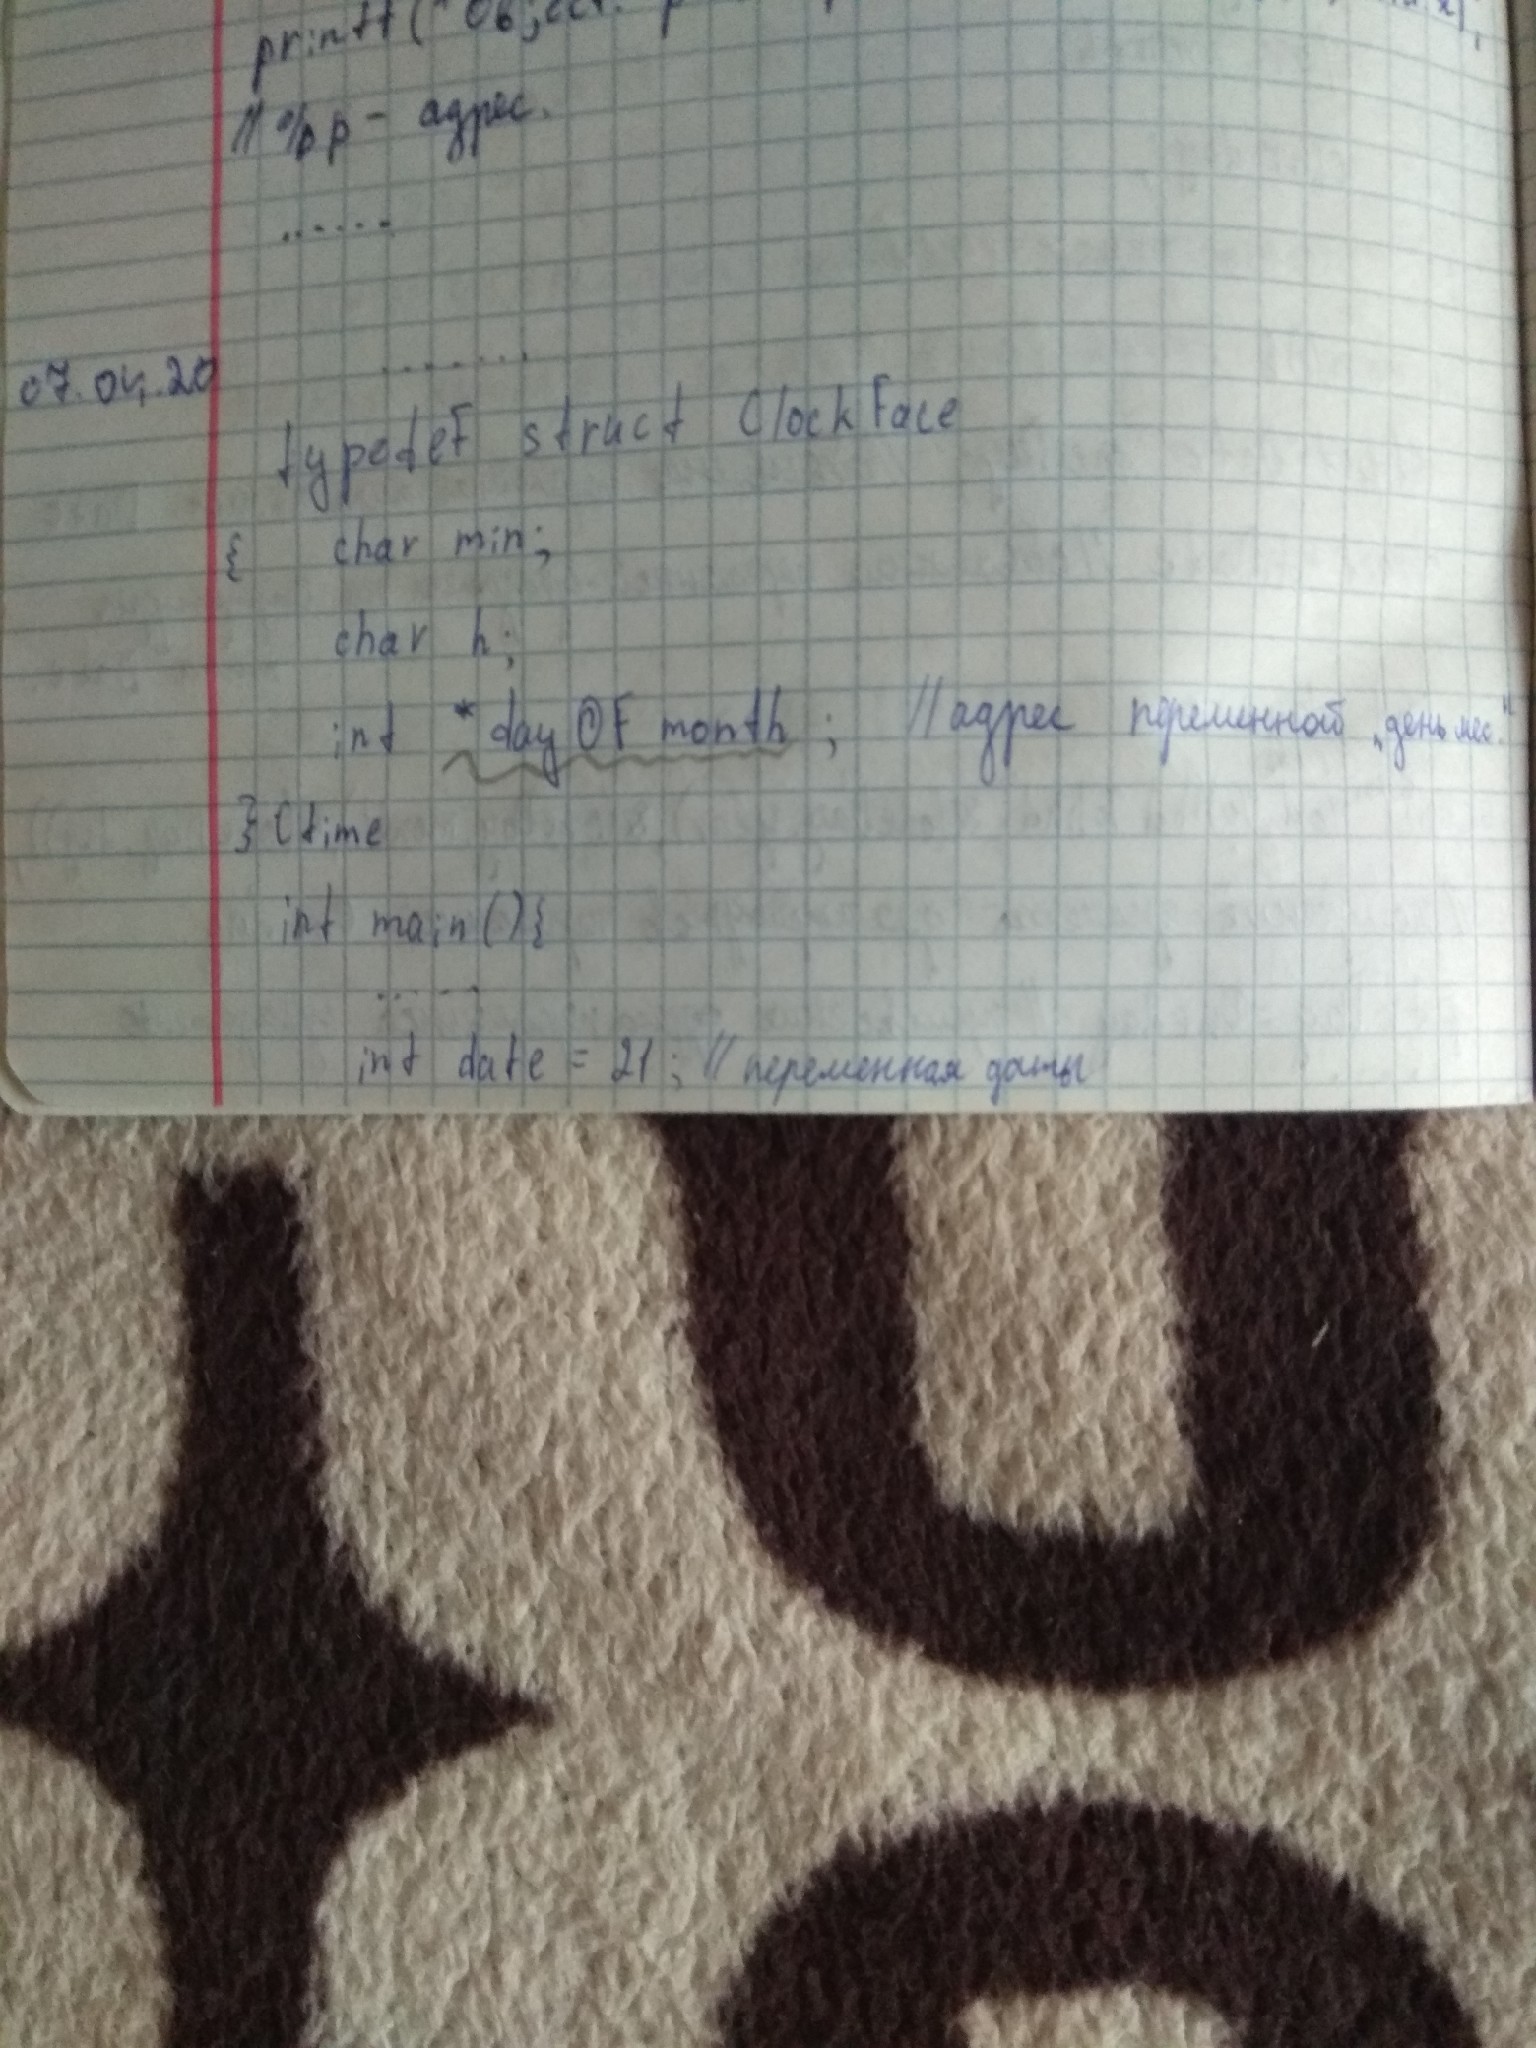 printf("Object
// %p - адрес.
......
.......
07.04.20
typedef struct ClockFace
{ char min;
char h;
int *dayOFmonth ; // адрес переменной „день мес."
} Ctime
int main(){
.....
int date = 21; // переменная даты